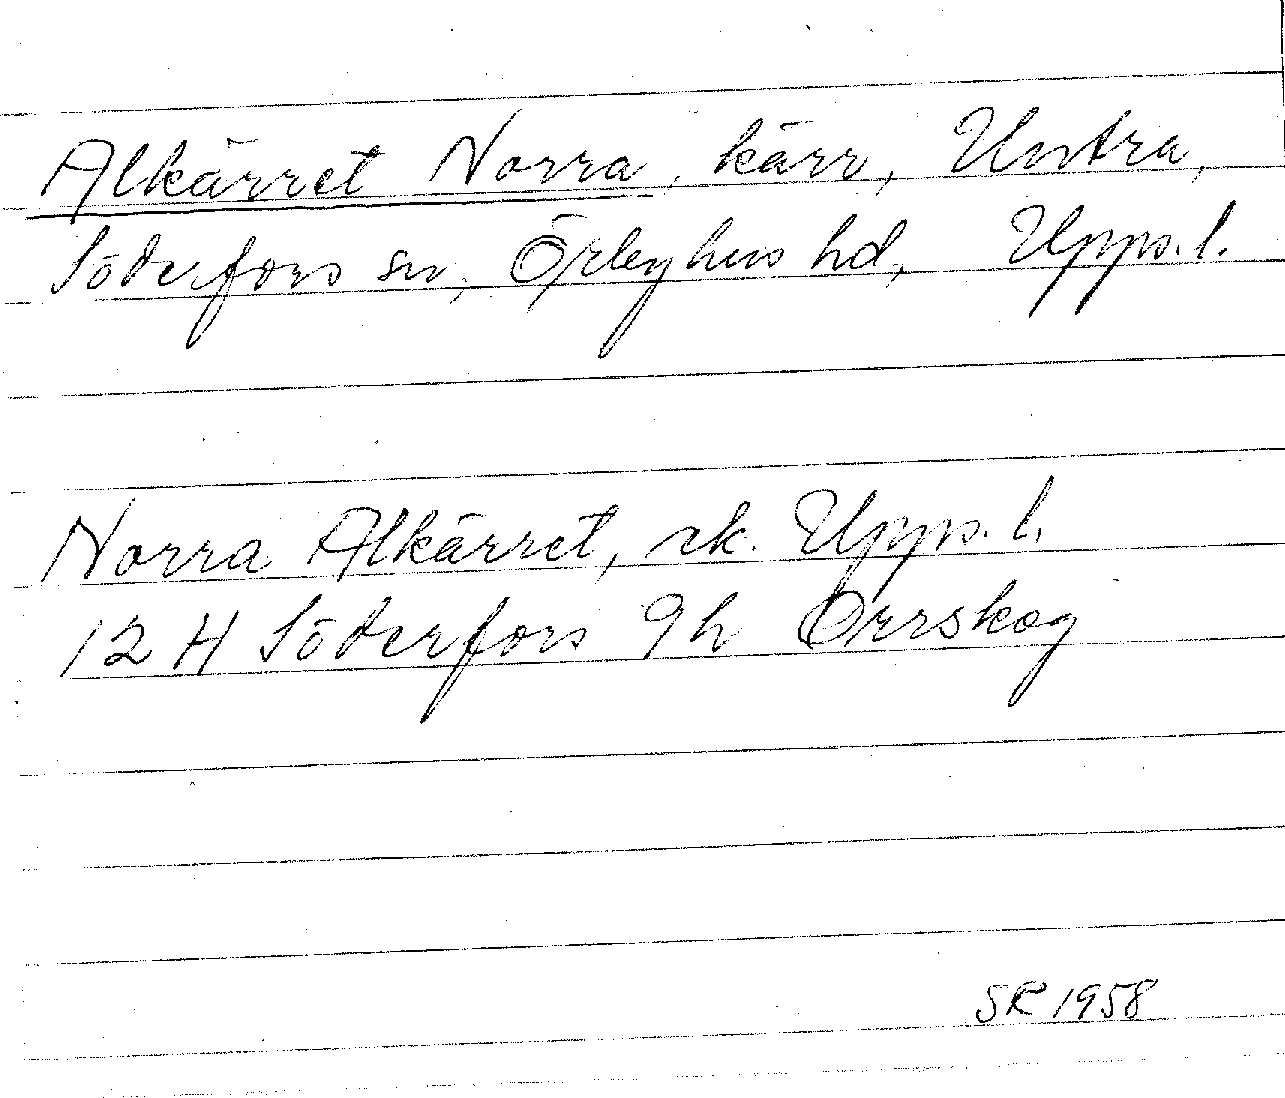 Alkärret Norra, kärr, Untra,
Söderfors sn, Örbyhus hd, Upps. l.
Norra Alkärret, ek. Upps. l.
12 H Söderfors 9h Orrskog
SR 1958